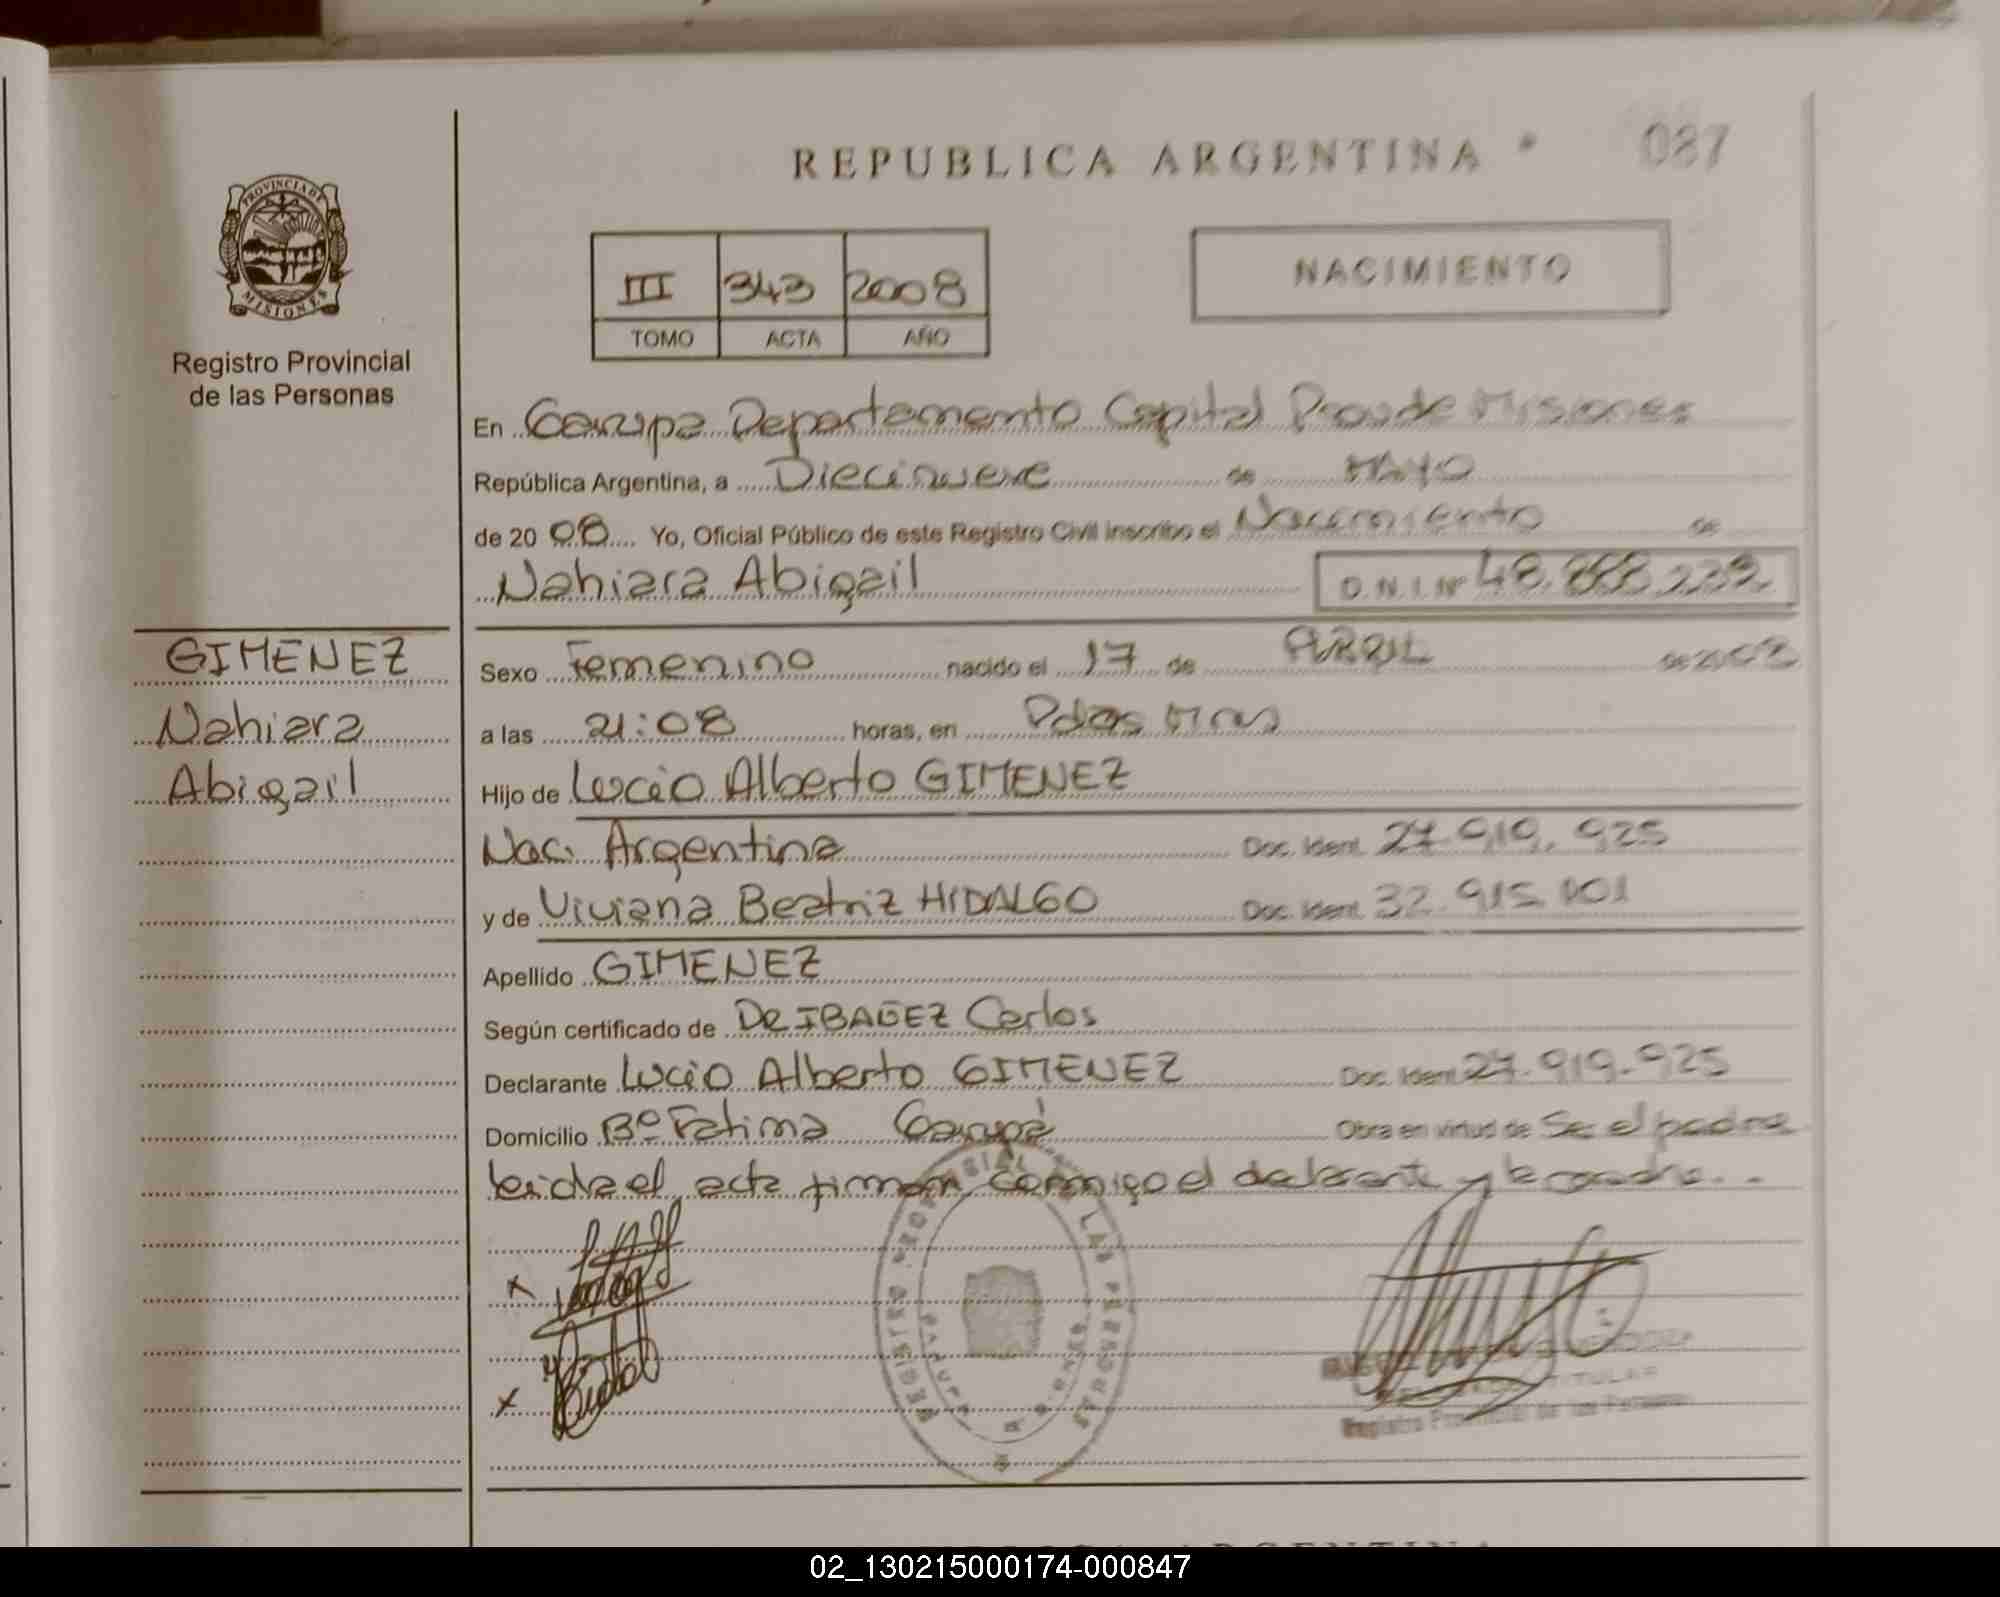 REPUBLICA ARGENTINA
087
PROVINCIA DE
MISIONES
Registro Provincial
de las Personas
III 343 2008
TOMO ACTA AÑO
NACIMIENTO
En Garupa Departamento Capital Prov de Misiones
República Argentina, a Diecinueve de MAYO
de 2008 Yo, Oficial Público de este Registro Civil inscribo el Nacimiento de
Nahiara Abigail D.N.I. Nº 48.888.232
GIMENEZ
Nahiara
Abigail
Sexo Femenino nacido el 17 de ABRIL de 2008
a las 21:08 horas, en Pdas Mnes
Hijo de Lucio Alberto GIMENEZ
Nac. Argentina Doc. Ident. 27.919.925
y de Viviana Beatriz HIDALGO Doc. Ident. 32.915.101
Apellido GIMENEZ
Según certificado de Dr IBAÑEZ Carlos
Declarante Lucio Alberto GIMENEZ Doc. Ident. 27.919.925
Domicilio Bº Fatima Garupá Obra en virtud de Ser el padre
leida el acta firman conmigo el declarante y la madre..
REGISTRO PROVINCIAL DE LAS PERSONAS
GARUPA
MISIONES
TITULAR
Registro Provincial de las Personas
02_130215000174-000847